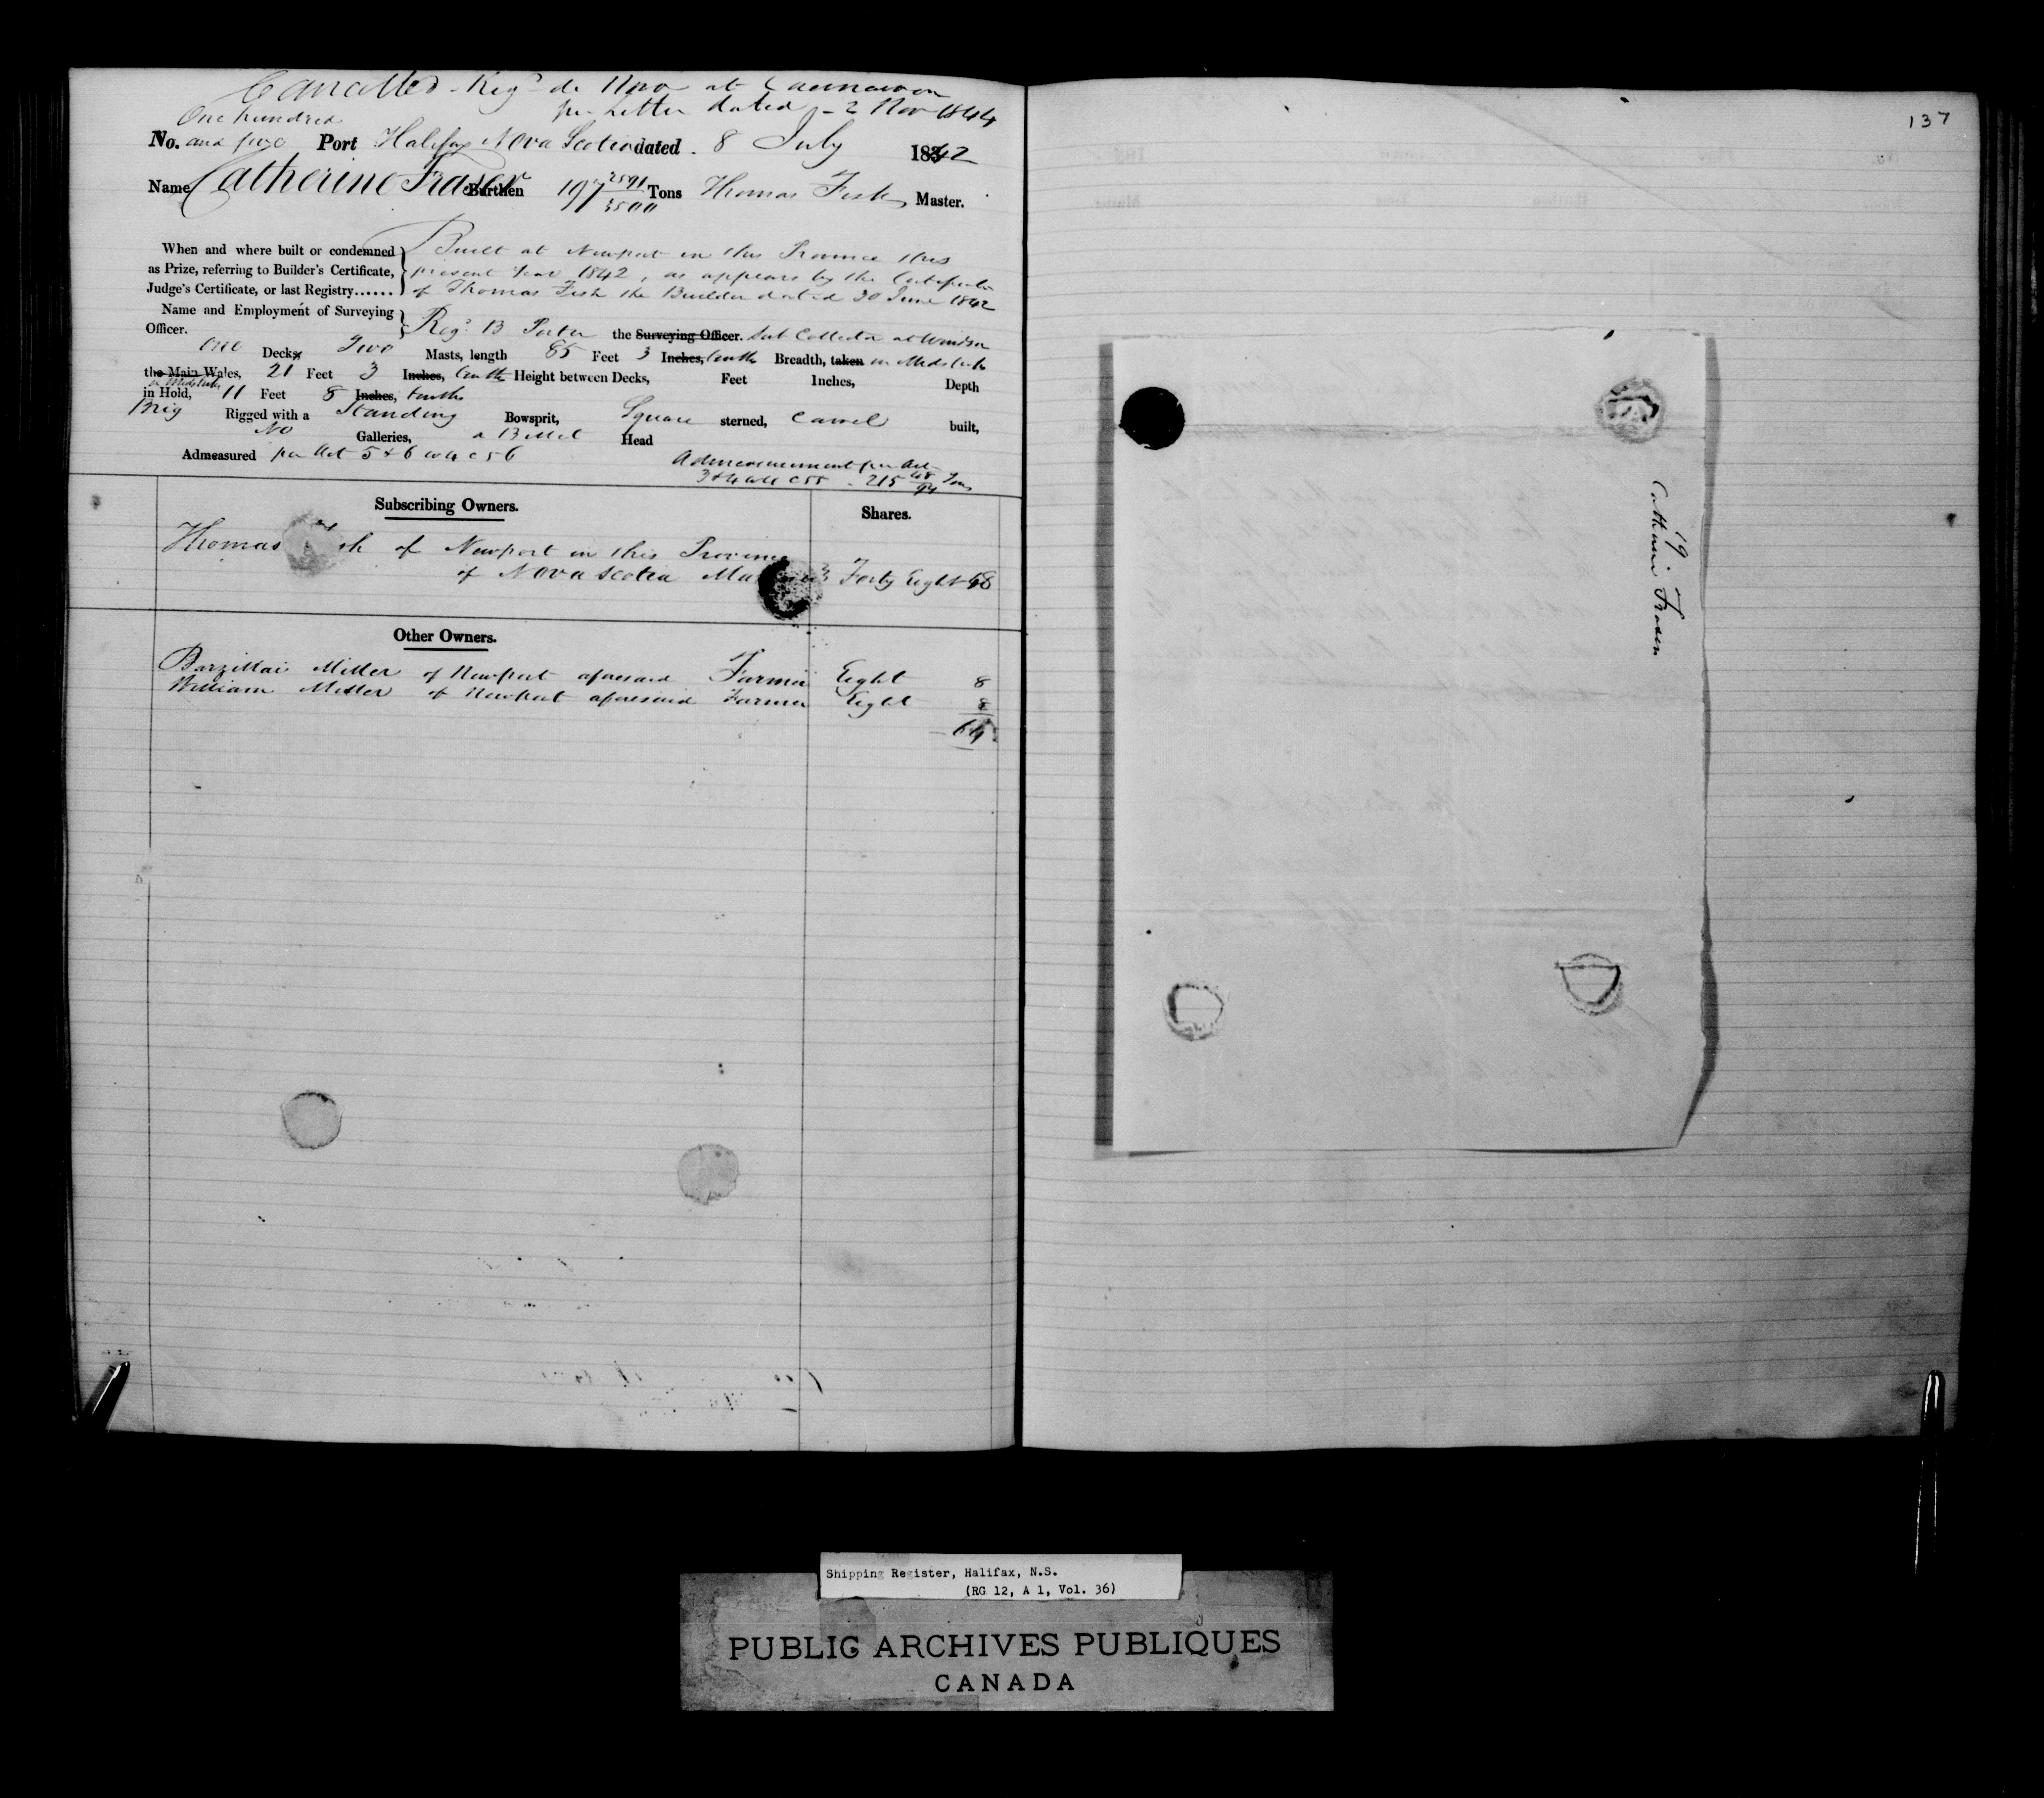 Cancelled - Regd de Novo at Caernarvon
per Letter dated - 2 Nov 1844
One hundred
No. and five Port Halifax Nova Scotia dated - 8 July 1842
Name Catherine Fraser Burthen 197 2591/3500 Tons Thomas Fish Master.
When and where built or condemned Built at Newport in this Province this
as Prize, referring to Builder's Certificate, present Year 1842, as appears by the Certificate
Judge's Certificate, or last Registry...... of Thomas Fish the Builder dated 30 June 1842
Name and Employment of Surveying
Officer. Regd B Porter the Surveying Officer. Sub Collector at Windsor
One Decks Two Masts, length 85 Feet 3 Inches, tenths Breadth, taken in Midships
the Main Wales, 21 Feet 3 Inches, tenths Height between Decks, Feet Inches, Depth
in Midships
in Hold, 11 Feet 8 Inches, tenths
Brig Rigged with a Standing Bowsprit, Square sterned, Carvel built,
No Galleries, a Billet Head
Admeasured per Act 5 & 6 W 4 C 56
Admeasurement per Act
3 & 4 W 4 C 55 - 215 48/94 Tons
Subscribing Owners. Shares.
Thomas Fish of Newport in this Province
of Nova Scotia Forty Eight 48
Other Owners.
Barzillai Miller of Newport aforesaid Farmer Eight 8
William Miller of Newport aforesaid Farmer Eight 8
64
137
19
Catherine Fraser
Shipping Register, Halifax, N.S.
(RG 12, A 1, Vol. 36)
PUBLIC ARCHIVES PUBLIQUES
CANADA